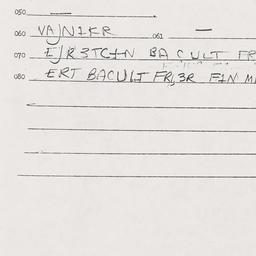 050 —
060 VAJN1KR 061 —
070 EJR3TCIN BA CULT FR
080 ERT BACULT FR,3R FIN M